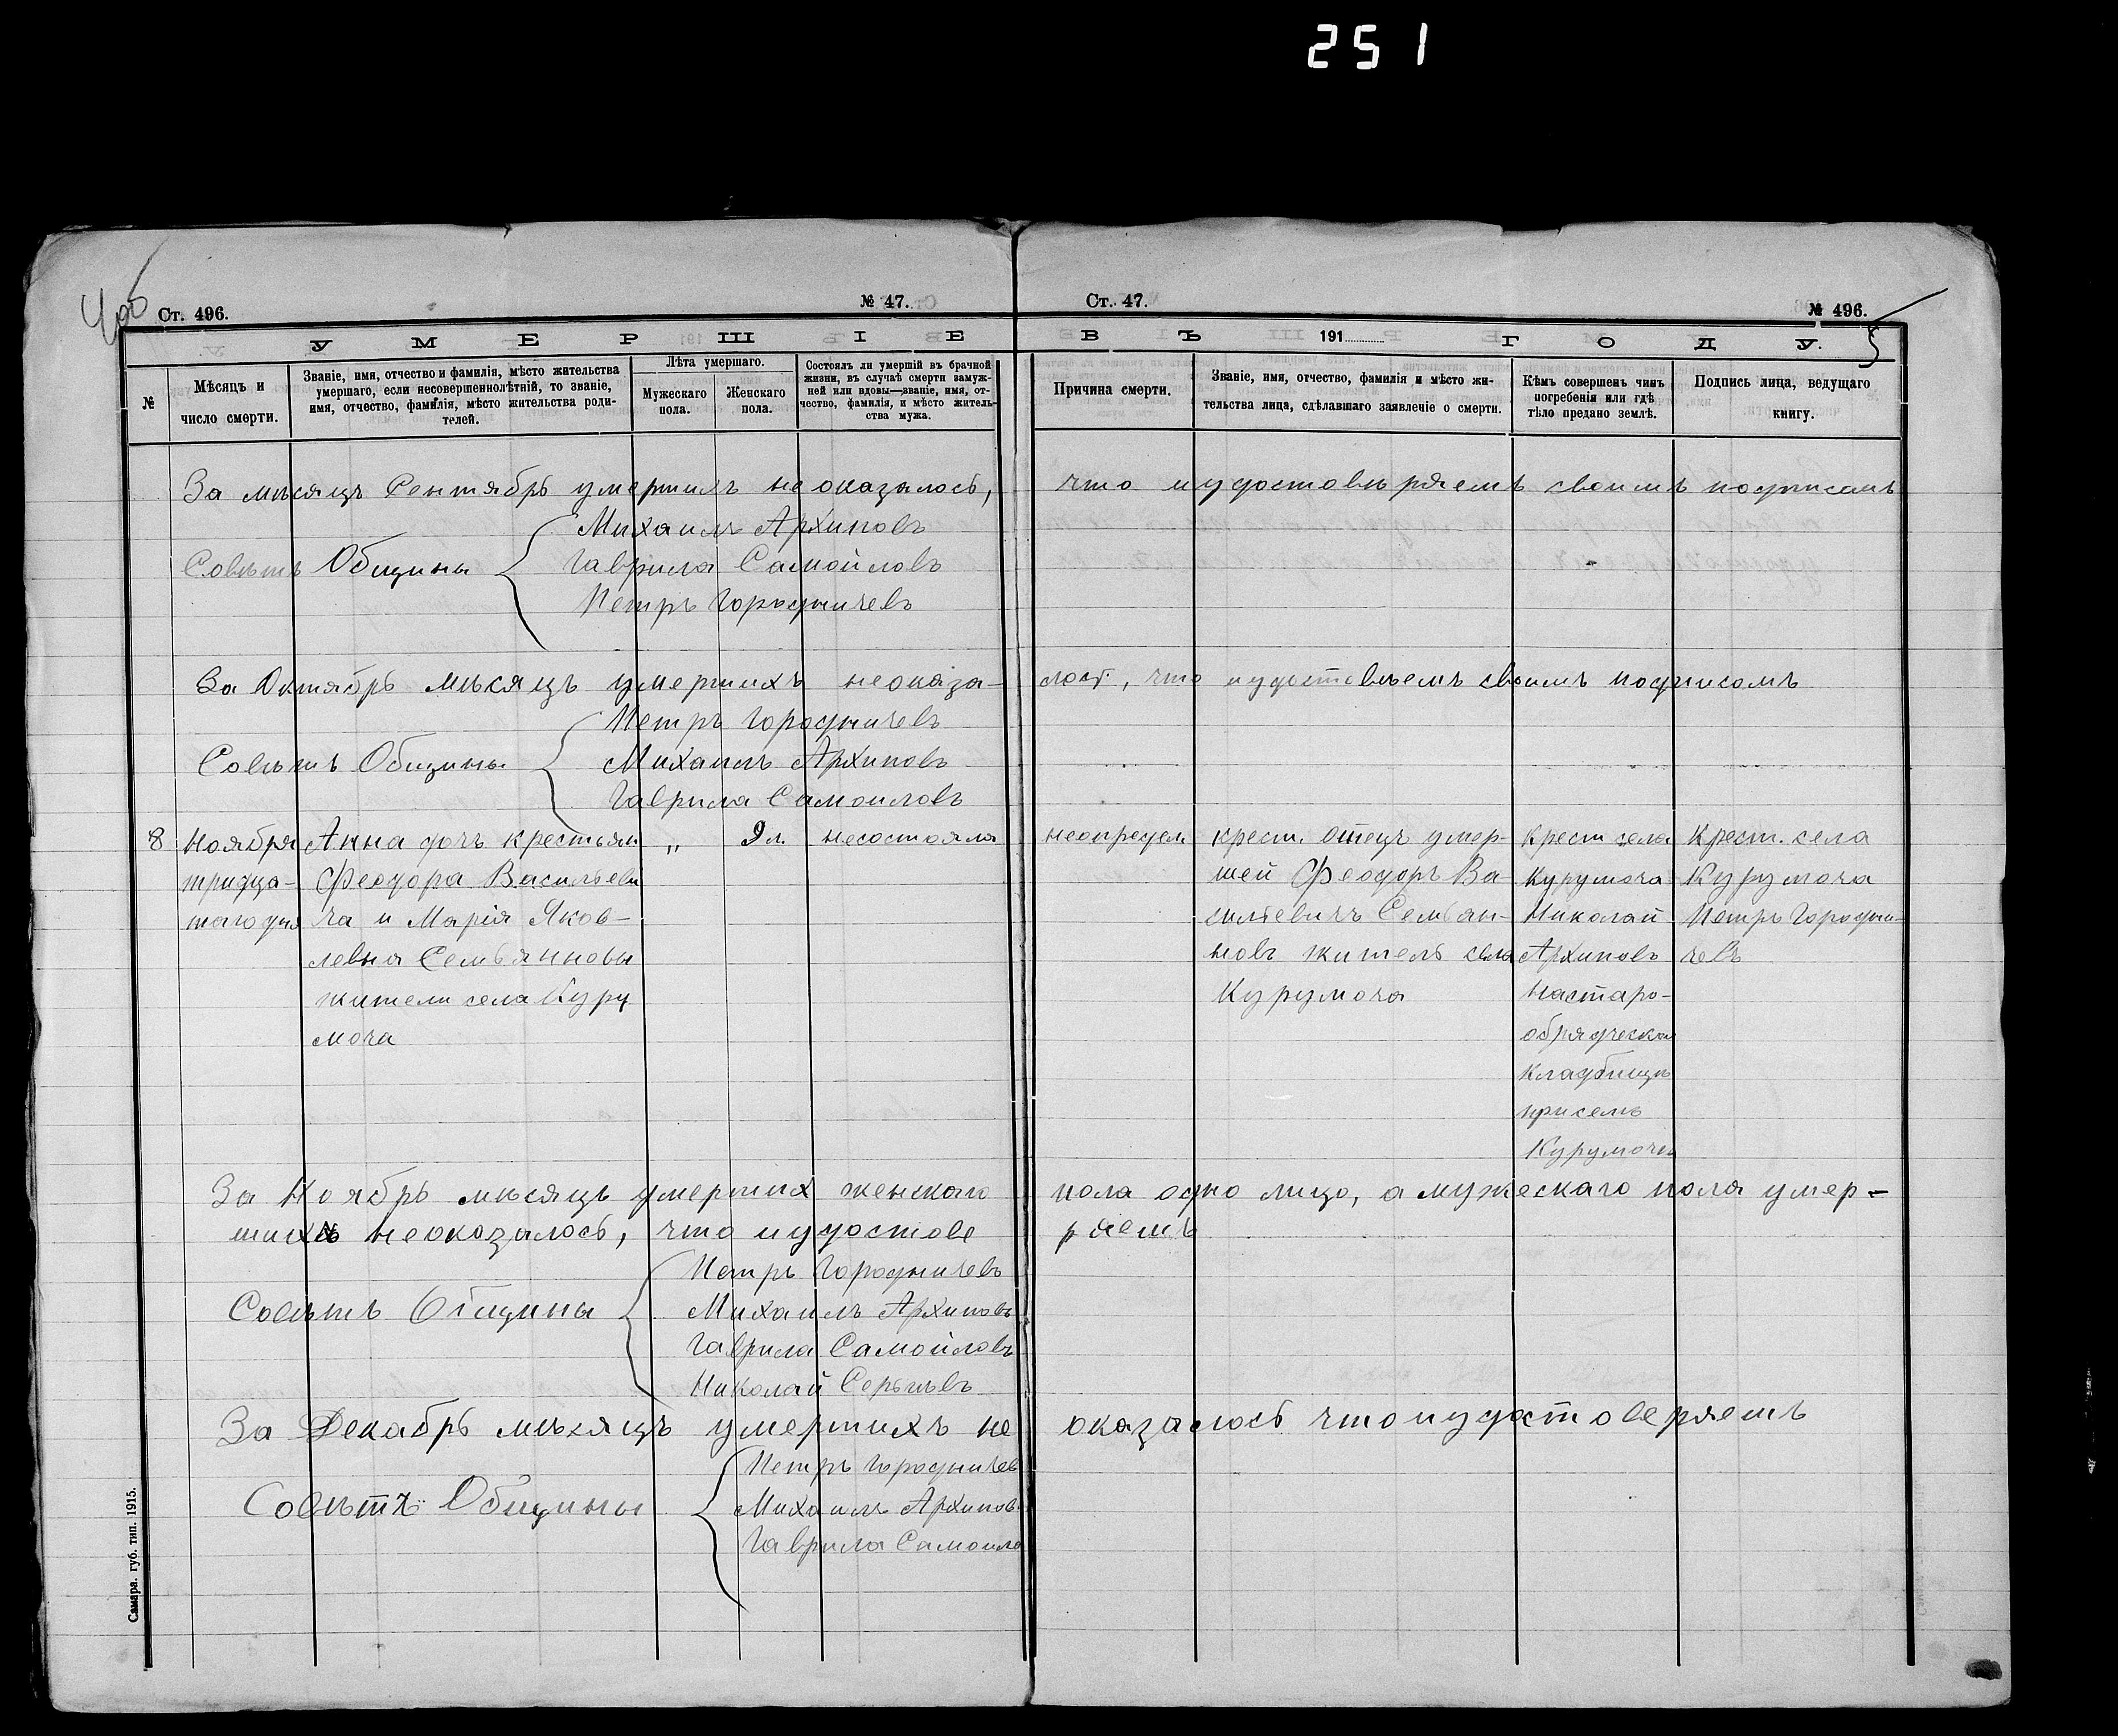 251
4об
Ст. 496.
№ 47.
Ст. 47.
№ 496.
5
УМЕРШІЕ
ВЪ 191 ГОДУ.
№
Мѣсяцъ и
число смерти.
Званіе, имя, отчество и фамилія, мѣсто жительства
умершаго, если несовершеннолѣтній, то званіе,
имя, отчество, фамилія, мѣсто жительства роди-
телей.
Лѣта умершаго.
Мужескаго
пола.
Женскаго
пола.
Состоялъ ли умершій въ брачной
жизни, въ случаѣ смерти замуж-
ней или вдовы—званіе, имя, от-
чество, фамилія, и мѣсто житель-
ства мужа.
Причина смерти.
Званіе, имя, отчество, фамилія и мѣсто жи-
тельства лица, сдѣлавшаго заявленіе о смерти.
Кѣмъ совершенъ чинъ
погребенія или гдѣ
тѣло предано землѣ.
Подпись лица, ведущаго
книгу.
За мѣсяцъ Сентябрь умершихъ не оказалось,
что и удостовѣряемъ своимъ подписамъ
Михаилъ Архиповъ
Совѣтъ Общины
Гаврила Самойловъ
Петръ Городничевъ
За Октябрь мѣсяцъ умершихъ неоказа-
лост, что и удостовѣемъ своимъ подписомъ
Петръ Городничевъ
Совѣтъ Общины
Михаилъ Архиповъ
Гаврила Самоиловъ
8
Ноября
тридца-
таго дня
Анна дочъ крестьян
Феодора Васильеви
ча и Марія Яков-
левна Семьянновы
жители села Куру
моча
"
9 л.
несостояла
неопредел
крест. отецъ умер-
шей Феодоръ Ва-
сильевичъ Семьан-
новъ житель села
Курумоча
Крест села
Курумоча
Николай
Архиповъ
Настаро-
обрядческом
кладбище
присемъ
Курумочи
Крест. села
Курумоча
Петръ Городни-
чевъ
За Ноябрь мѣсяцъ умерших женскаго
пола одно лицо, а мужескаго пола умер-
шихъ неоказалось, что и удостове
ряемъ
Петръ Городничевъ
Совѣтъ Общины
Михаилъ Архиповъ
Гаврила Самойловъ
Николай
За Декабрь мѣсяцъ умершихъ не
оказалось что и удостоверяемъ
Петръ Городничев
Совѣтъ Общины
Михаилъ Архипов
Гаврила Самоило
Самара. губ. тип. 1915.